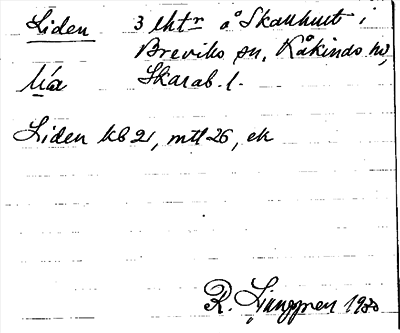 Liden 3 lhtr å Skallhult i
Breviks sn, Kåkinds hd,
Skarab. l.
Liden kb 21, mtl 26, ek
R. Ljunggren 1930